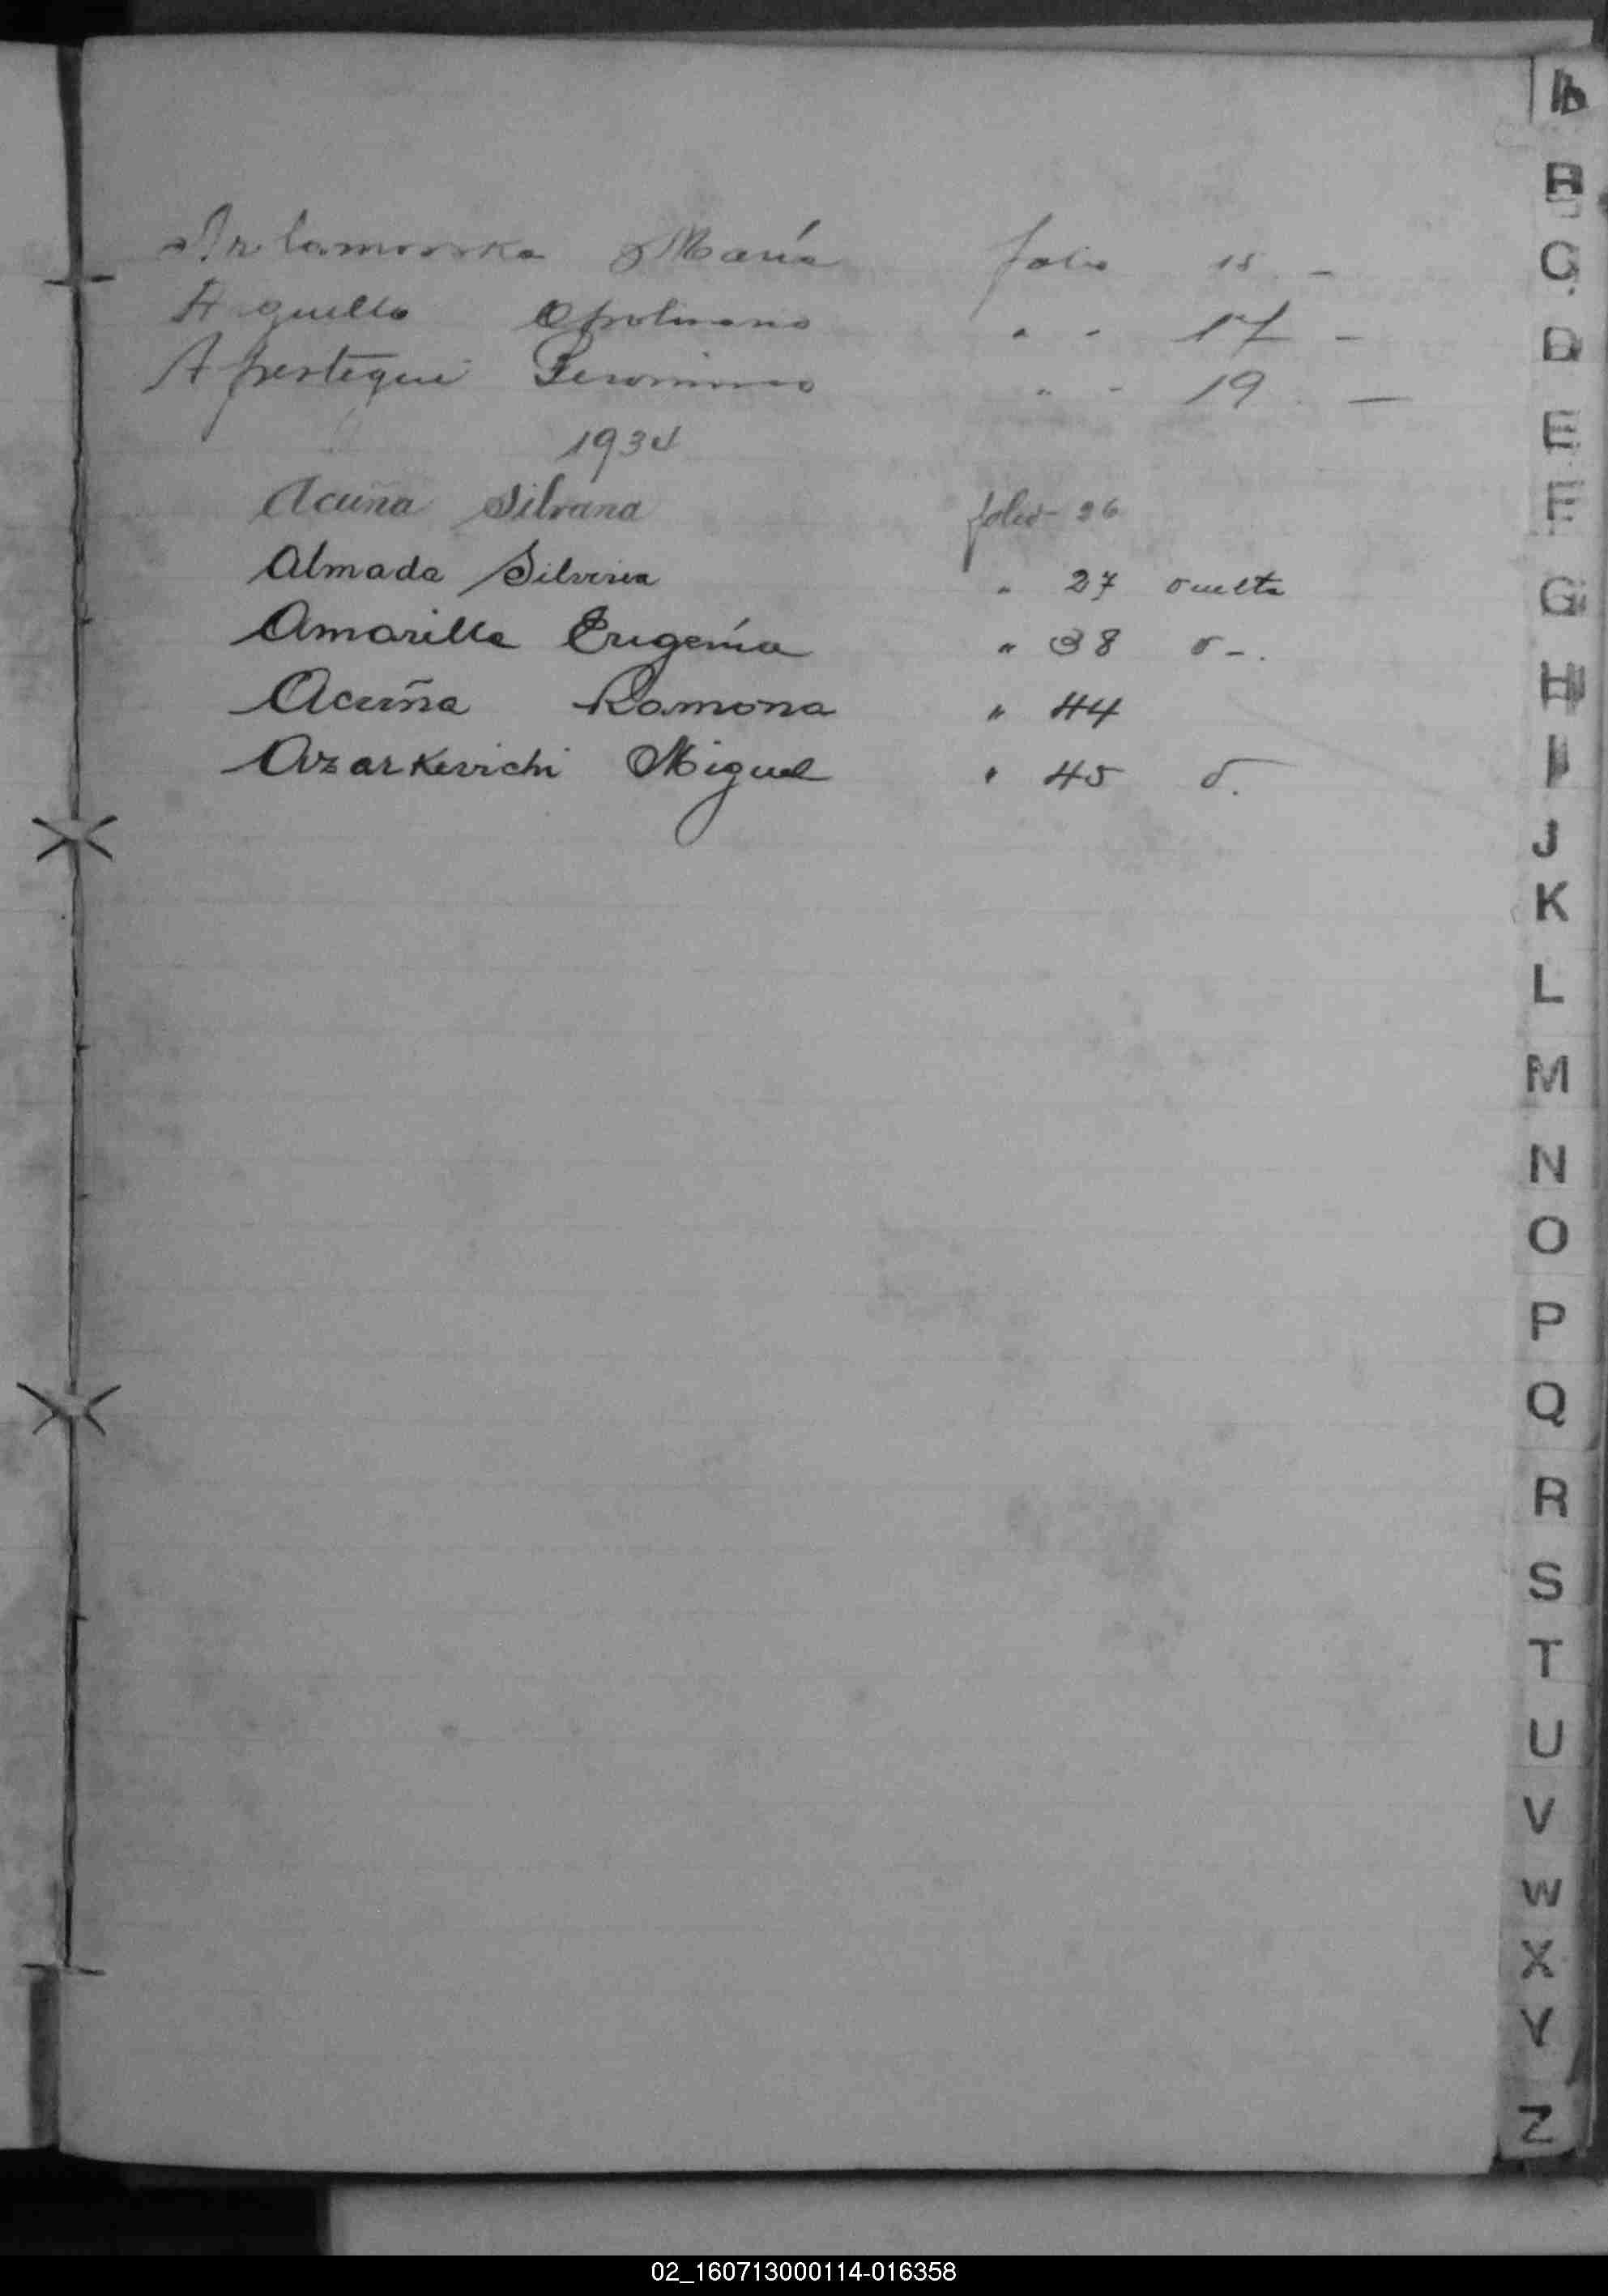 María folio 15 -
Arguello Apolinario " " 17 -
Aprestegui Geronimo " " 19 . -
1934
Acuña Silvana folio 26
Almada Silveria " 27 vuelta
Amarilla Eugenia " 38 v-.
Acuña Ramona " 44
Azarkevichi Miguel " 45 v.
A
B
C
D
E
F
G
H
I
J
K
L
M
N
O
P
Q
R
S
T
U
V
W
X
Y
Z
02_160713000114-016358